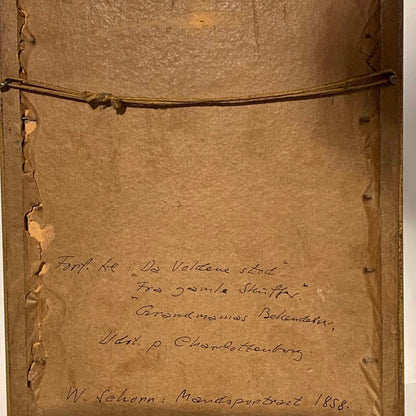 Forf. til: "Da Voldene stod"
"Fra gamle Skuffer".
"Grandmamas Bekendelser".
Udst. p. Charlottenborg.
W. Schorn: Mandsportræt 1858.